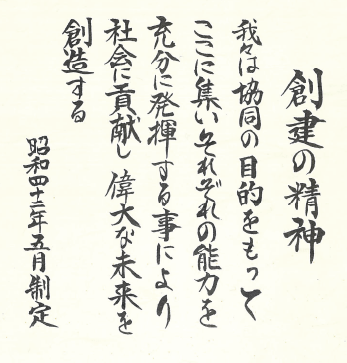 創建の精神
我々は協同の目的をもって
ここに集いそれぞれの能力を
充分に発揮する事により
社会に貢献し 偉大な未来を
創造する
昭和四十二年五月制定